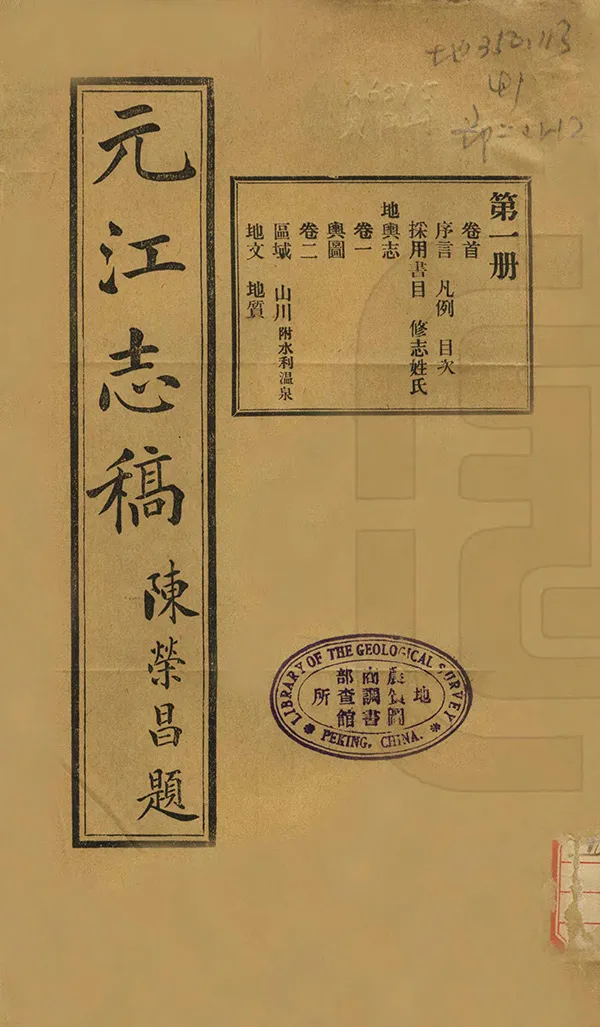 元江志稿
陳榮昌題
第一册
卷首
序言 凡例 目次
採用書目 修志姓氏
地輿志
卷一
輿圖
卷二
區域 山川附水利溫泉
地文 地質
LIBRARY OF THE GEOLOGICAL SURVEY
PEKING, CHINA.
地
商調書
部查館
所
地350.113